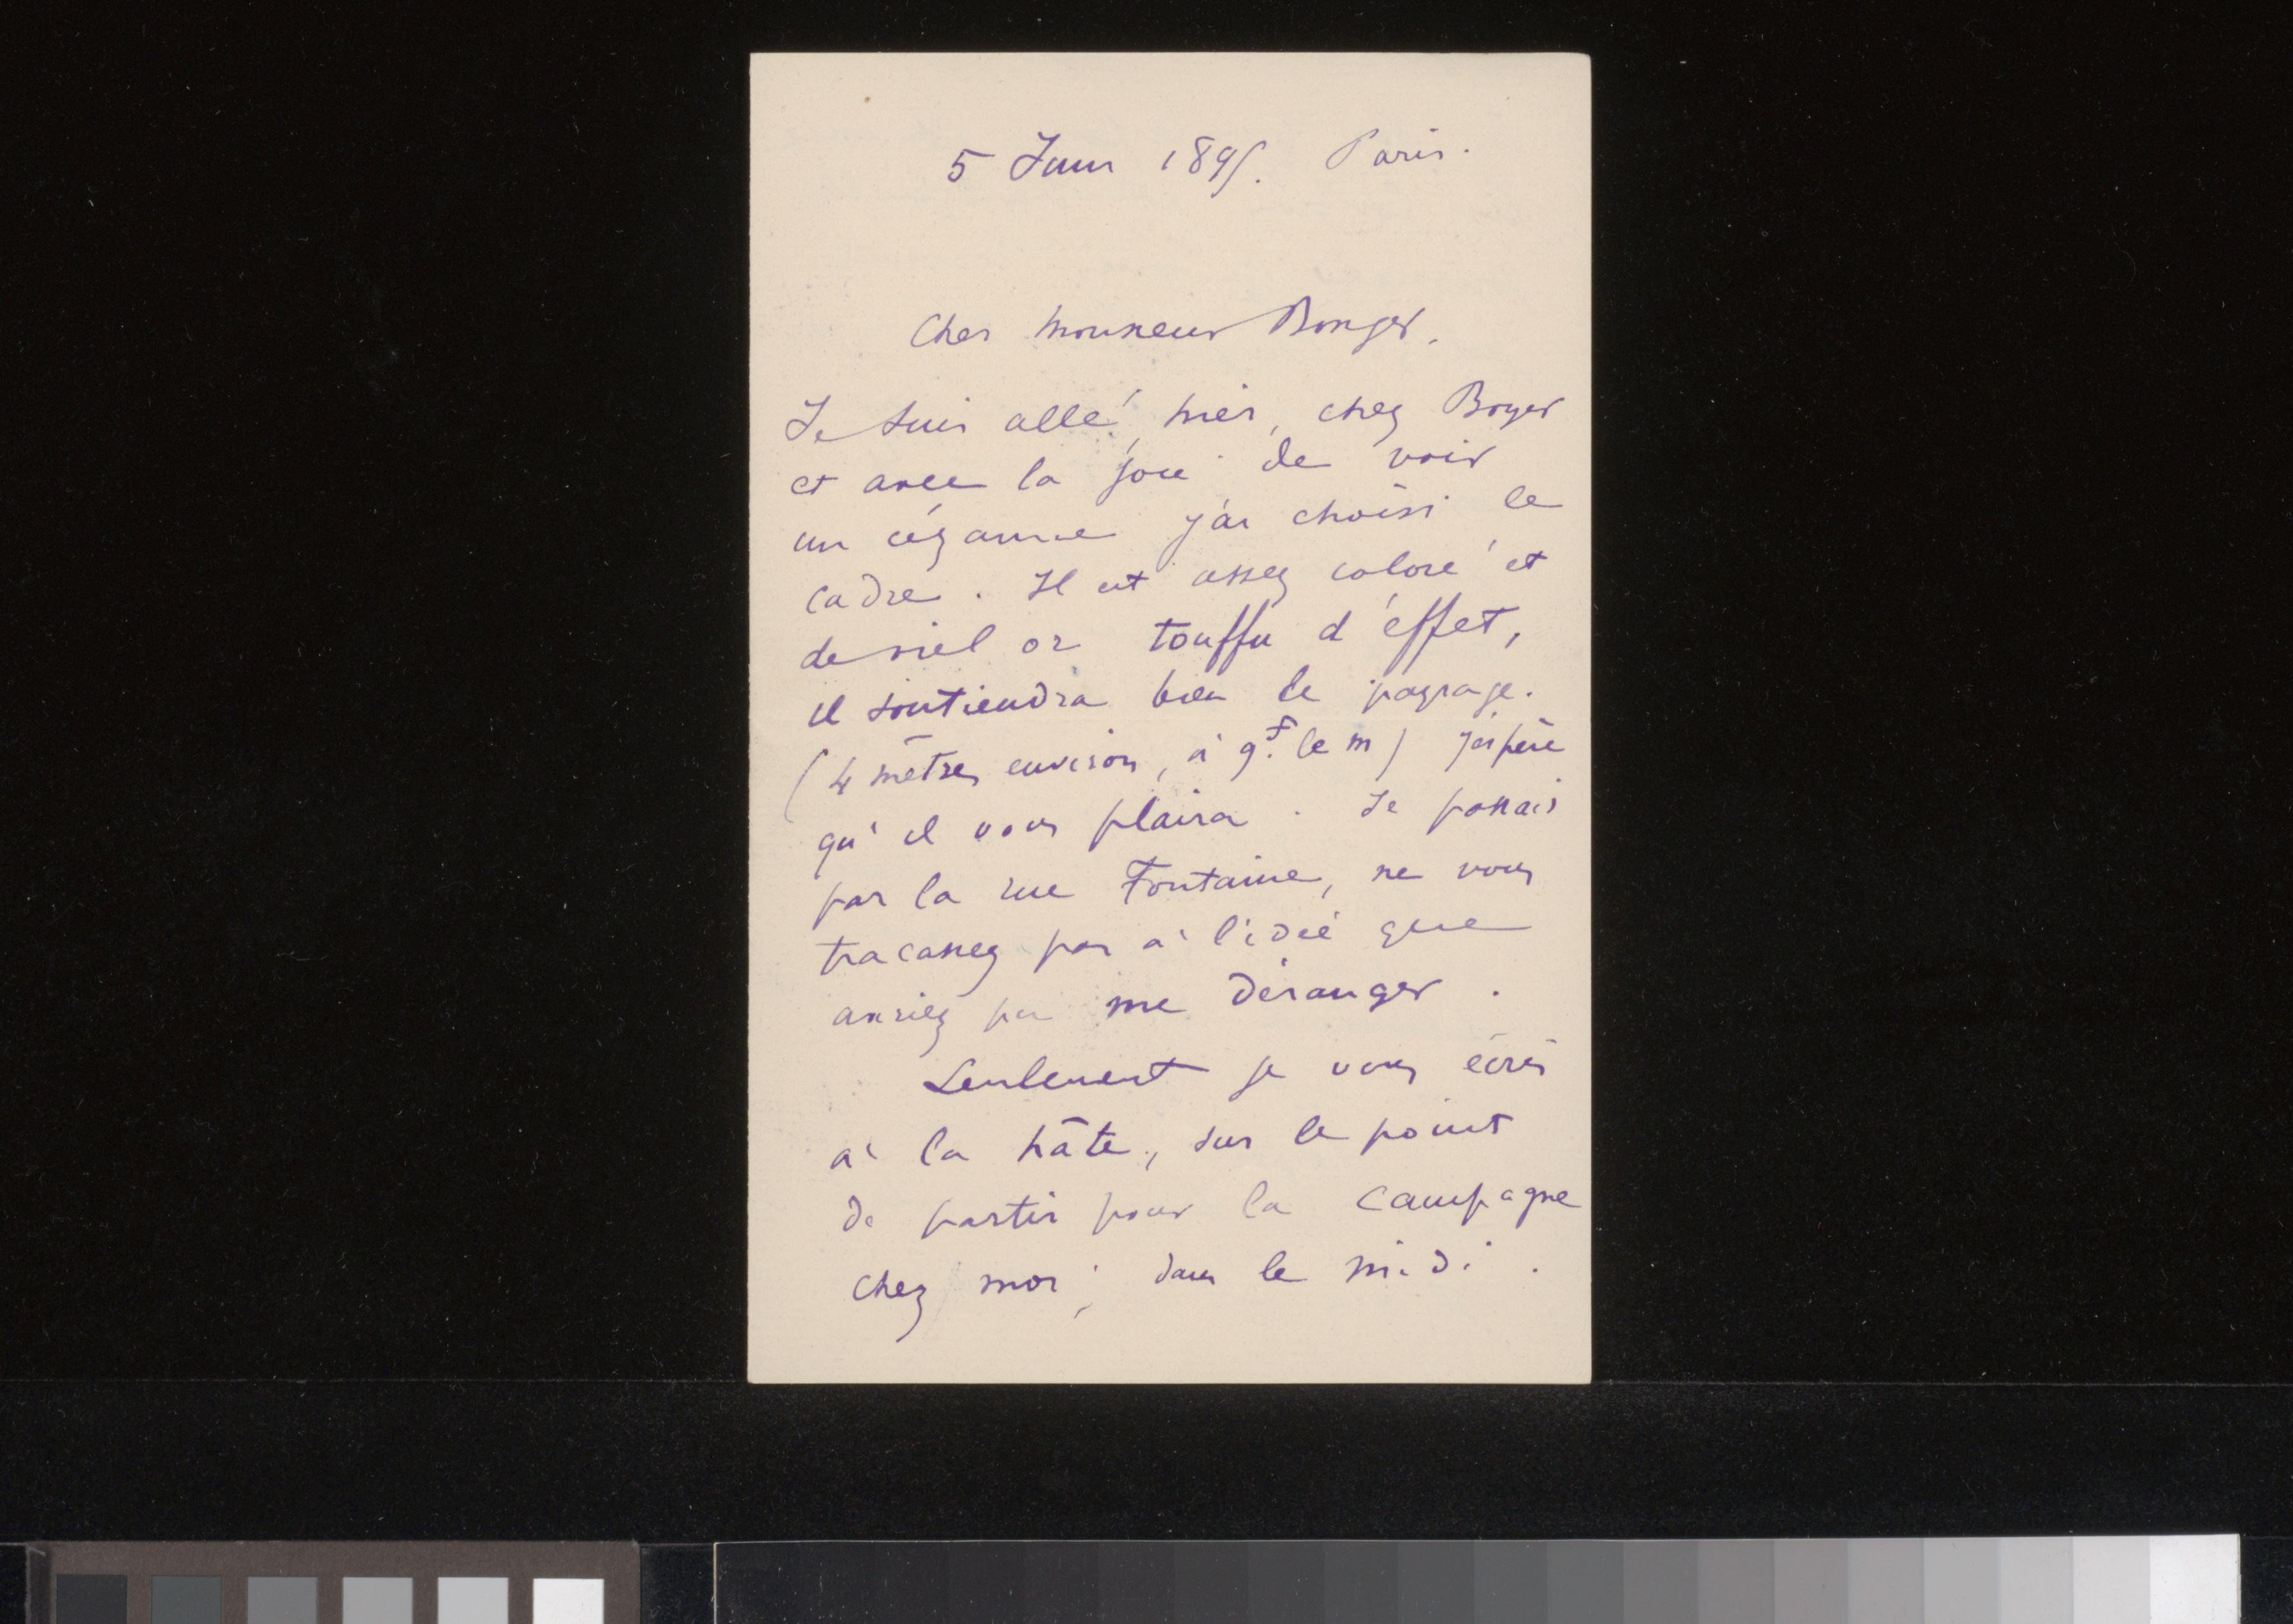 5 Juin 1895. Paris.
Cher monsieur Bonger,
Je suis allé, hier, chez Boyer
et avec la joie de voir
un cézanne j'ai choisi le
cadre. Il est assez coloré et
de viel or touffu d'effet,
il soutiendra bien le paysage.
(4 mètres environ, à 9f. le m) j'éspère
qu'il vous plaira. Je passais
par la rue Fontaine, ne vous
tracassez pas à l'idée que
auriez pu me déranger.
Seulement je vous écris
à la hâte, sur le point
de partir pour la campagne
chez moi, dans le midi.